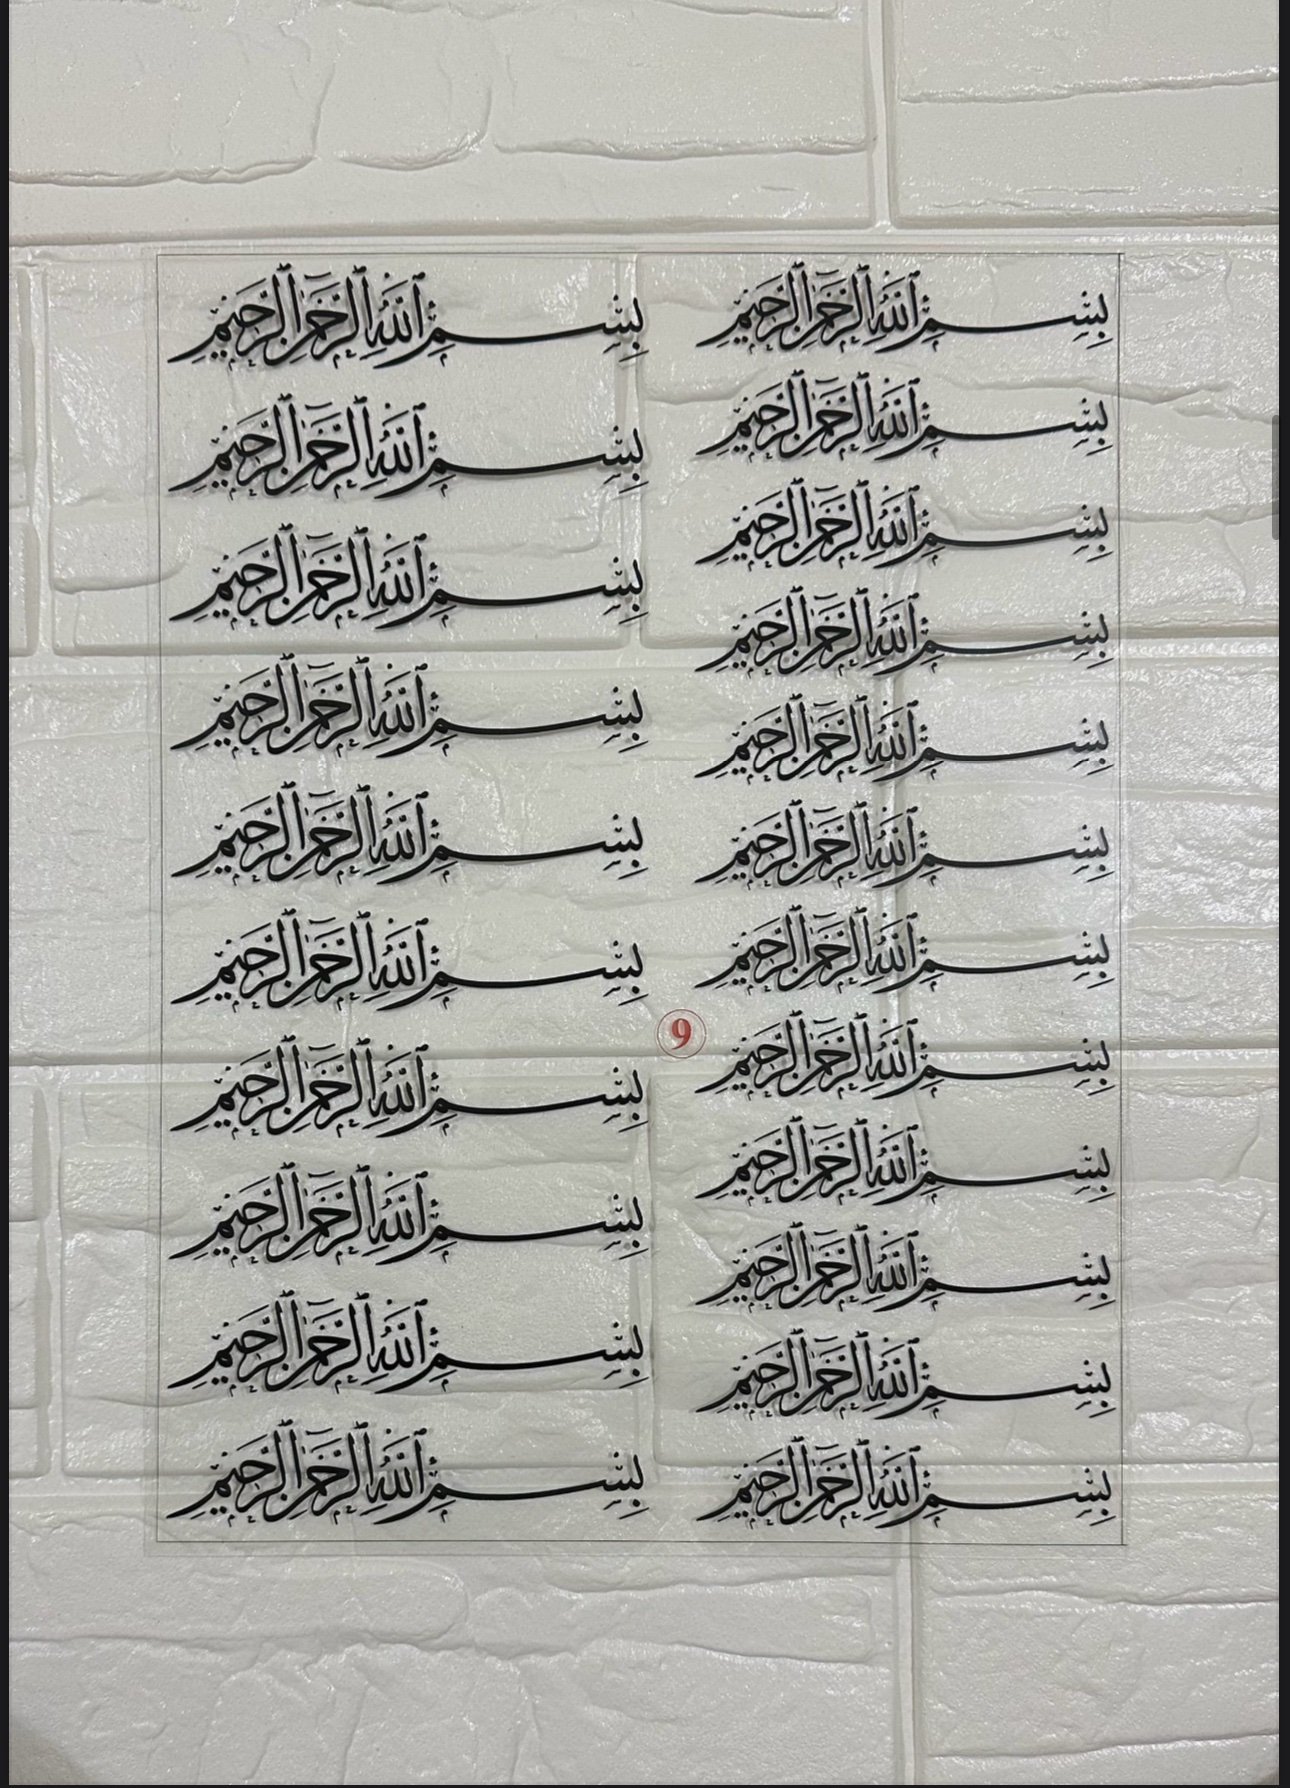 بِسْمِ ٱللَّهِ ٱلرَّحْمَٰنِ ٱلرَّحِيمِ
بِسْمِ ٱللَّهِ ٱلرَّحْمَٰنِ ٱلرَّحِيمِ
بِسْمِ ٱللَّهِ ٱلرَّحْمَٰنِ ٱلرَّحِيمِ
بِسْمِ ٱللَّهِ ٱلرَّحْمَٰنِ ٱلرَّحِيمِ
بِسْمِ ٱللَّهِ ٱلرَّحْمَٰنِ ٱلرَّحِيمِ
بِسْمِ ٱللَّهِ ٱلرَّحْمَٰنِ ٱلرَّحِيمِ
بِسْمِ ٱللَّهِ ٱلرَّحْمَٰنِ ٱلرَّحِيمِ
بِسْمِ ٱللَّهِ ٱلرَّحْمَٰنِ ٱلرَّحِيمِ
بِسْمِ ٱللَّهِ ٱلرَّحْمَٰنِ ٱلرَّحِيمِ
بِسْمِ ٱللَّهِ ٱلرَّحْمَٰنِ ٱلرَّحِيمِ
بِسْمِ ٱللَّهِ ٱلرَّحْمَٰنِ ٱلرَّحِيمِ
بِسْمِ ٱللَّهِ ٱلرَّحْمَٰنِ ٱلرَّحِيمِ
9
بِسْمِ ٱللَّهِ ٱلرَّحْمَٰنِ ٱلرَّحِيمِ
بِسْمِ ٱللَّهِ ٱلرَّحْمَٰنِ ٱلرَّحِيمِ
بِسْمِ ٱللَّهِ ٱلرَّحْمَٰنِ ٱلرَّحِيمِ
بِسْمِ ٱللَّهِ ٱلرَّحْمَٰنِ ٱلرَّحِيمِ
بِسْمِ ٱللَّهِ ٱلرَّحْمَٰنِ ٱلرَّحِيمِ
بِسْمِ ٱللَّهِ ٱلرَّحْمَٰنِ ٱلرَّحِيمِ
بِسْمِ ٱللَّهِ ٱلرَّحْمَٰنِ ٱلرَّحِيمِ
بِسْمِ ٱللَّهِ ٱلرَّحْمَٰنِ ٱلرَّحِيمِ
بِسْمِ ٱللَّهِ ٱلرَّحْمَٰنِ ٱلرَّحِيمِ
بِسْمِ ٱللَّهِ ٱلرَّحْمَٰنِ ٱلرَّحِيمِ